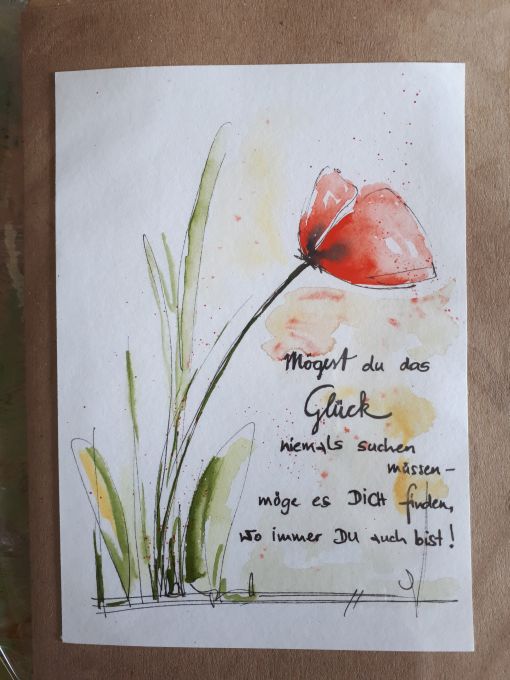 Mögest du das
Glück
niemals suchen
müssen-
möge es DiCH finden,
wo immer DU auch bist!